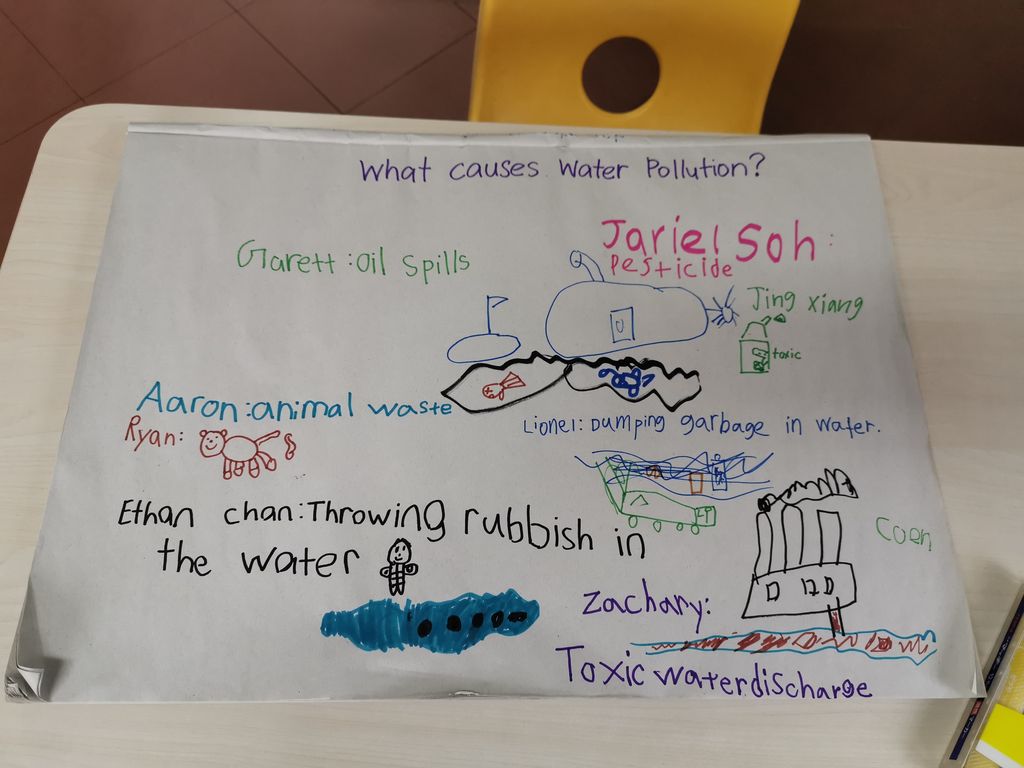 What causes Water Pollution?
Jariel Soh:
Pesticide
Garett: Oil Spills
Jing xiang
toxic
Aaron: animal waste
Ryan:
Lionel: Dumping garbage in water.
Ethan chan: Throwing rubbish in
the water
Coen
Zachary:
Toxic waterdischarge